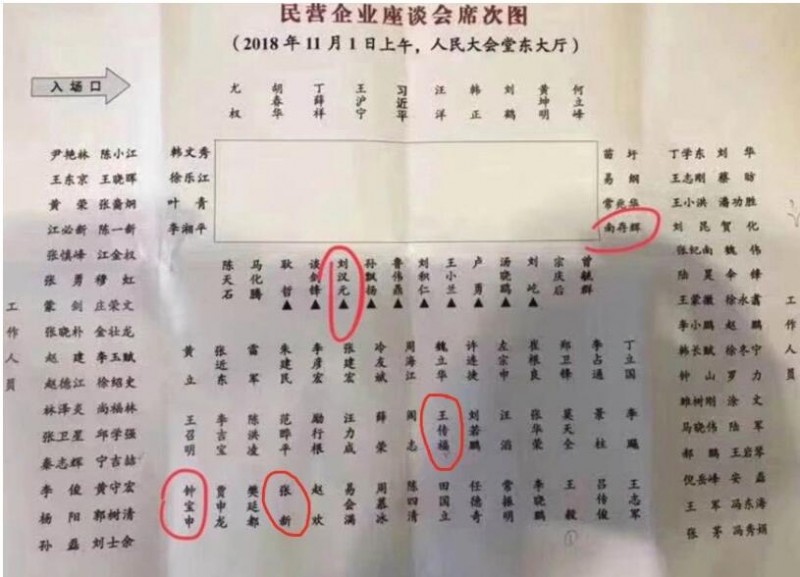 民营企业座谈会席次图
(2018年11月1日上午，人民大会堂东大厅)
入场口
尤权 胡春华 丁薛祥 王沪宁 习近平 汪洋 韩正 刘鹤 黄坤明 何立峰
尹艳林 陈小江
王东京 王晓晖
黄荣 张裔炯
江必新 陈一新
张慎峰 江金权
张勇 穆虹
蒙剑 庄荣文
张晓朴 金壮龙
赵建 李玉赋
赵德江 徐绍史
林泽炎 尚福林
张卫星 邱学强
秦志辉 宁吉喆
李俊 黄守宏
杨阳 郭树清
孙磊 刘士余
工作人员
韩文秀
徐乐江
叶青
李湘平
苗圩
易纲
常兆华
南存辉
陈天石 马化腾 耿哲▲ 谈剑锋▲ 刘汉元▲ 孙飘扬▲ 鲁伟鼎▲ 刘积仁▲ 王小兰▲ 卢勇▲ 汤晓鸥▲ 刘屹▲ 宗庆后 曾毓群
黄立 张近东 雷军 朱建民 李彦宏 张建宏 冷友斌 周海江 魏立华 许连捷 左宗申 崔根良 郑卫锋 李占通 丁立国
王召明 李吉宝 陈洪凌 范晔平 励行根 汪力成 薛荣 阎志 王传福 刘若鹏 汪滔 张华荣 莫天全 景柱 李飚
钟宝申 贾申龙 樊延都 张新 赵欢 易会满 周慕冰 陈四清 田国立 任德奇 常振明 李晓鹏 王毅 吕传俊 王志军
丁学东 刘华
王志刚 蔡昉
王小洪 潘功胜
刘昆 贺化
张纪南 魏伟
陆昊 余锋
王蒙徽 徐永鑫
李小鹏 赵鹏
韩长赋 徐冬宁
钟山 罗力
雒树刚 涂文
马晓伟 陆军
郝鹏 王岩琴
倪岳峰 安磊
王军 冯东海
张茅 冯秀娟
工作人员
①